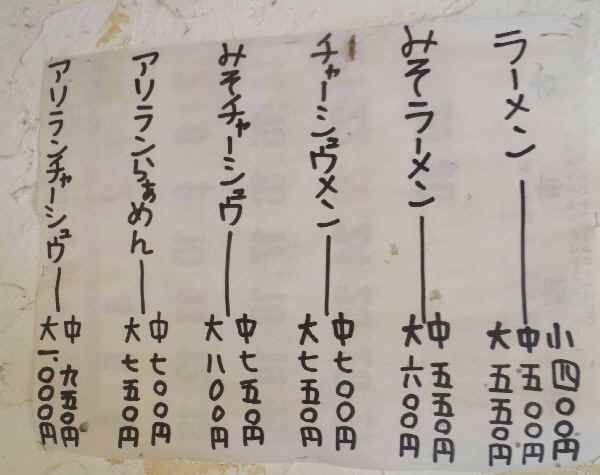 ラーメン――
小 四〇〇円
中 五〇〇円
大 五五〇円
みそラーメン――
中 五五〇円
大 六〇〇円
チャーシュウメン――
中 七〇〇円
大 七五〇円
みそチャーシュウ――
中 七五〇円
大 八〇〇円
アリランらぁめん――
中 七〇〇円
大 七五〇円
アリランチャーシュウ――
中 九五〇円
大 一、〇〇〇円